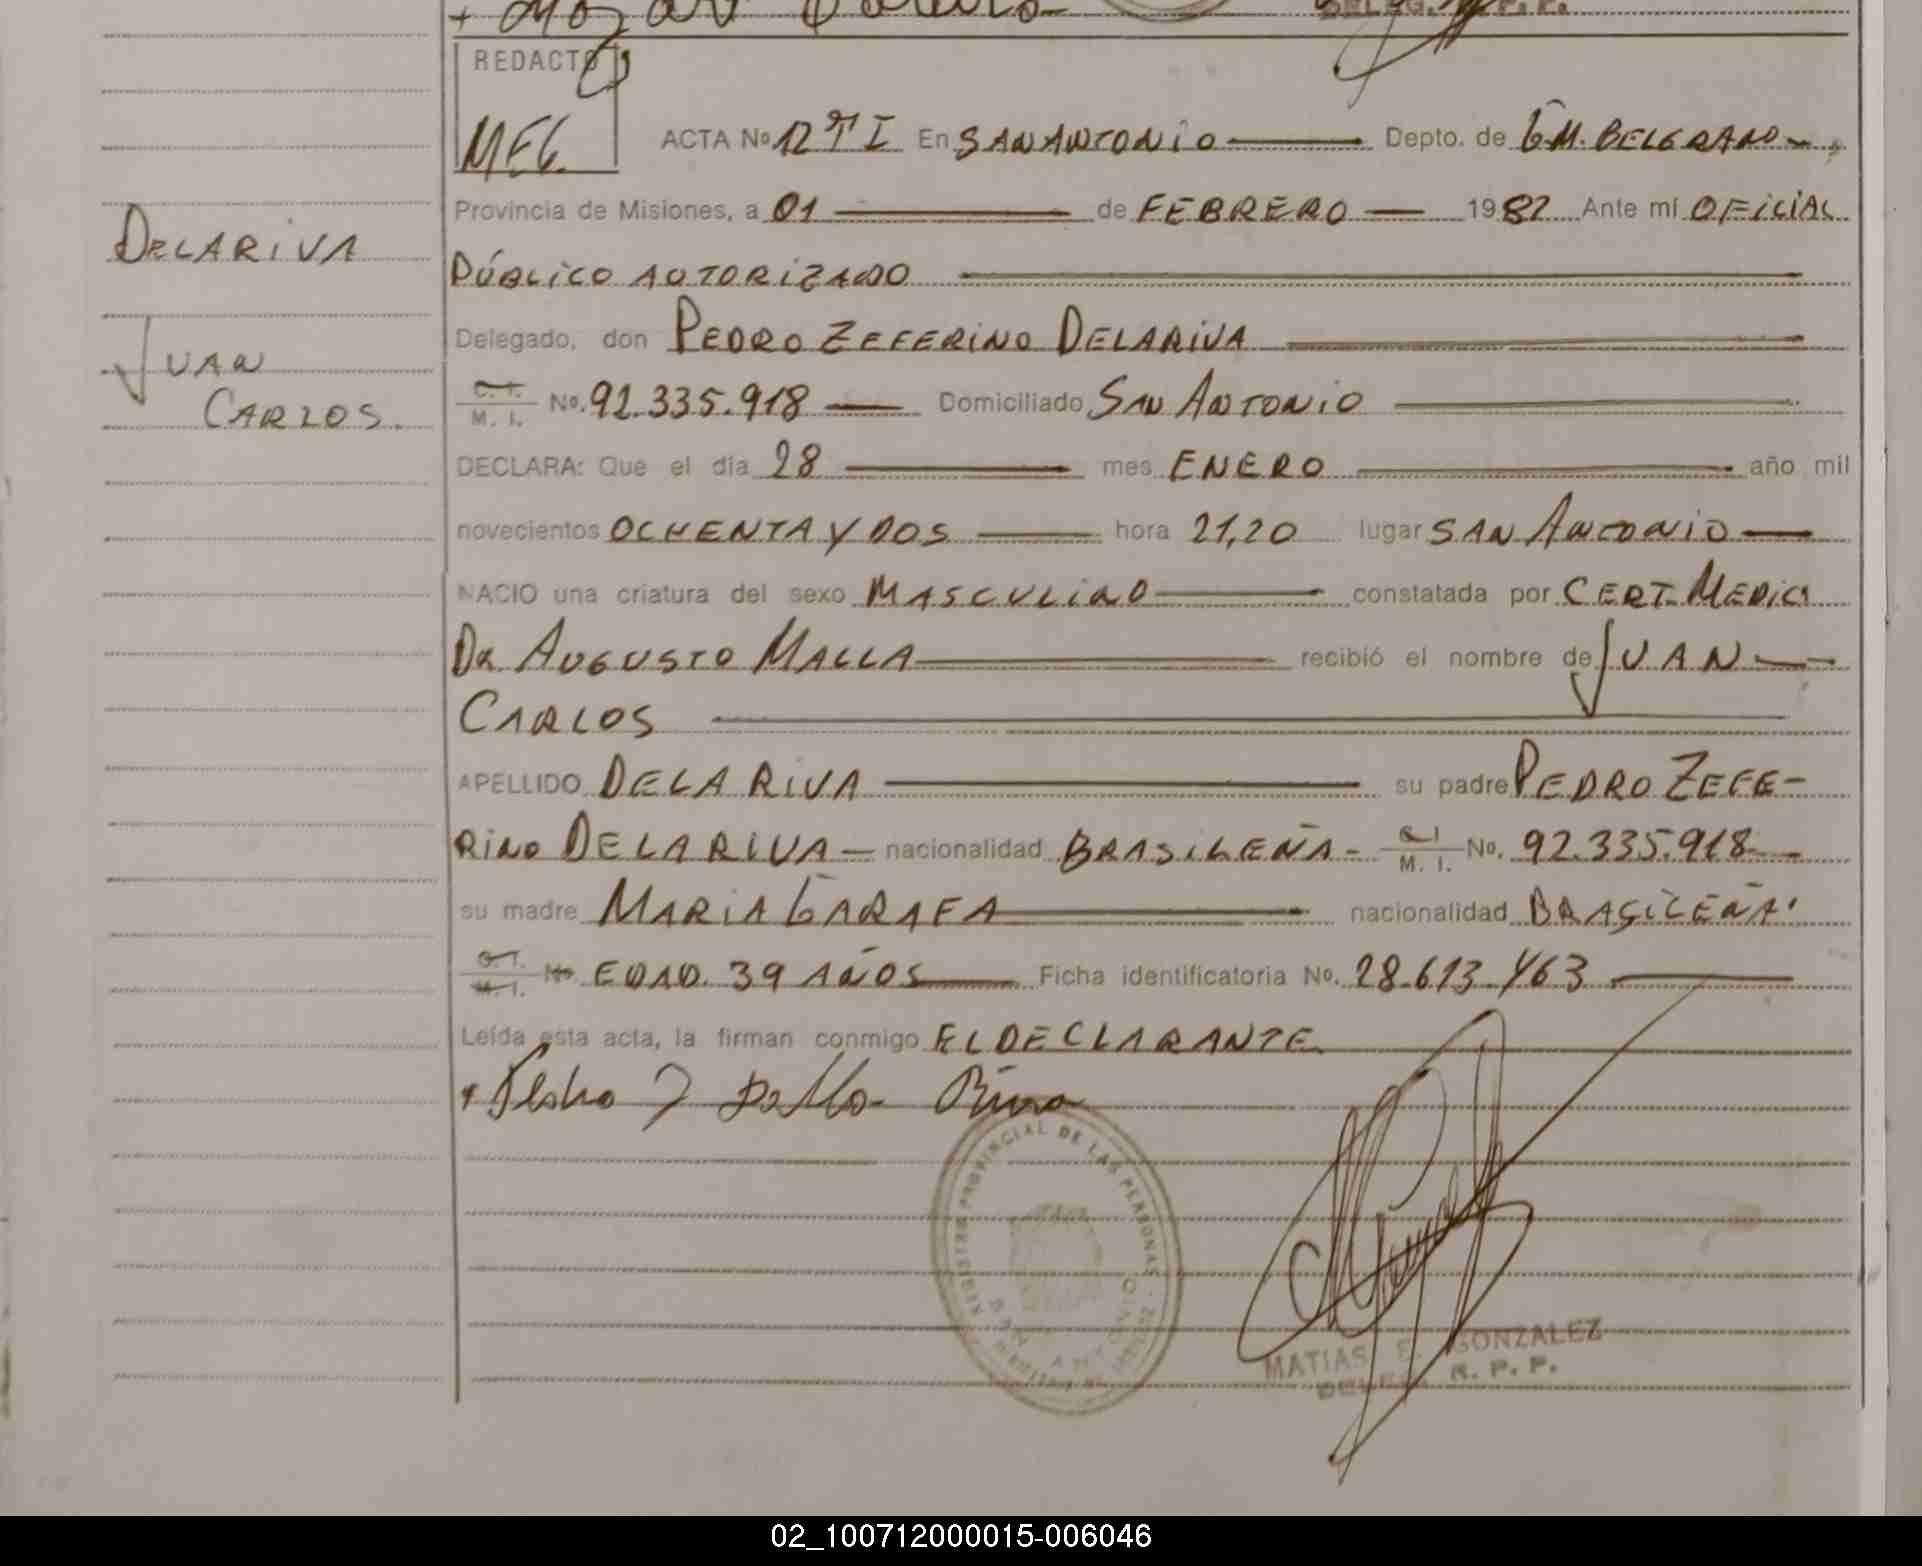 REDACTO
MEG.
ACTA Nº 12 TI En SAN ANTONIO Depto. de G M. BELGRANO
Provincia de Misiones, a 01 de FEBRERO 1982 Ante mí OFICIAL
PÚBLICO AUTORIZADO
Delegado, don PEDRO ZEFERINO DELARIVA
C. I. M. I. Nº. 92.335.918 Domiciliado SAN ANTONIO
DECLARA: Que el día 28 mes ENERO año mil
novecientos OCHENTA Y DOS hora 21,20 lugar SAN ANTONIO
NACIO una criatura del sexo MASCULINO constatada por CERT. MEDICO
DR. AUGUSTO MALLA recibió el nombre de JUAN
CARLOS
APELLIDO DELARIVA su padre PEDRO ZEFE-
RINO DELARIVA - nacionalidad BRASILEÑA - C. I. M. I. Nº. 92.335.918
su madre MARIA GARAFA nacionalidad BRASILEÑA
C. I. M. I. Nº EDAD. 39 AÑOS Ficha identificatoria Nº. 28.613.463
Leída esta acta, la firman conmigo EL DECLARANTE
Pedro Z Dalla Riva
DELARIVA
JUAN
CARLOS.
REGISTRO PROVINCIAL DE LAS PERSONAS
SAN ANTONIO
MATIAS E. GONZALEZ
DELEG. R. P. P.
02_100712000015-006046